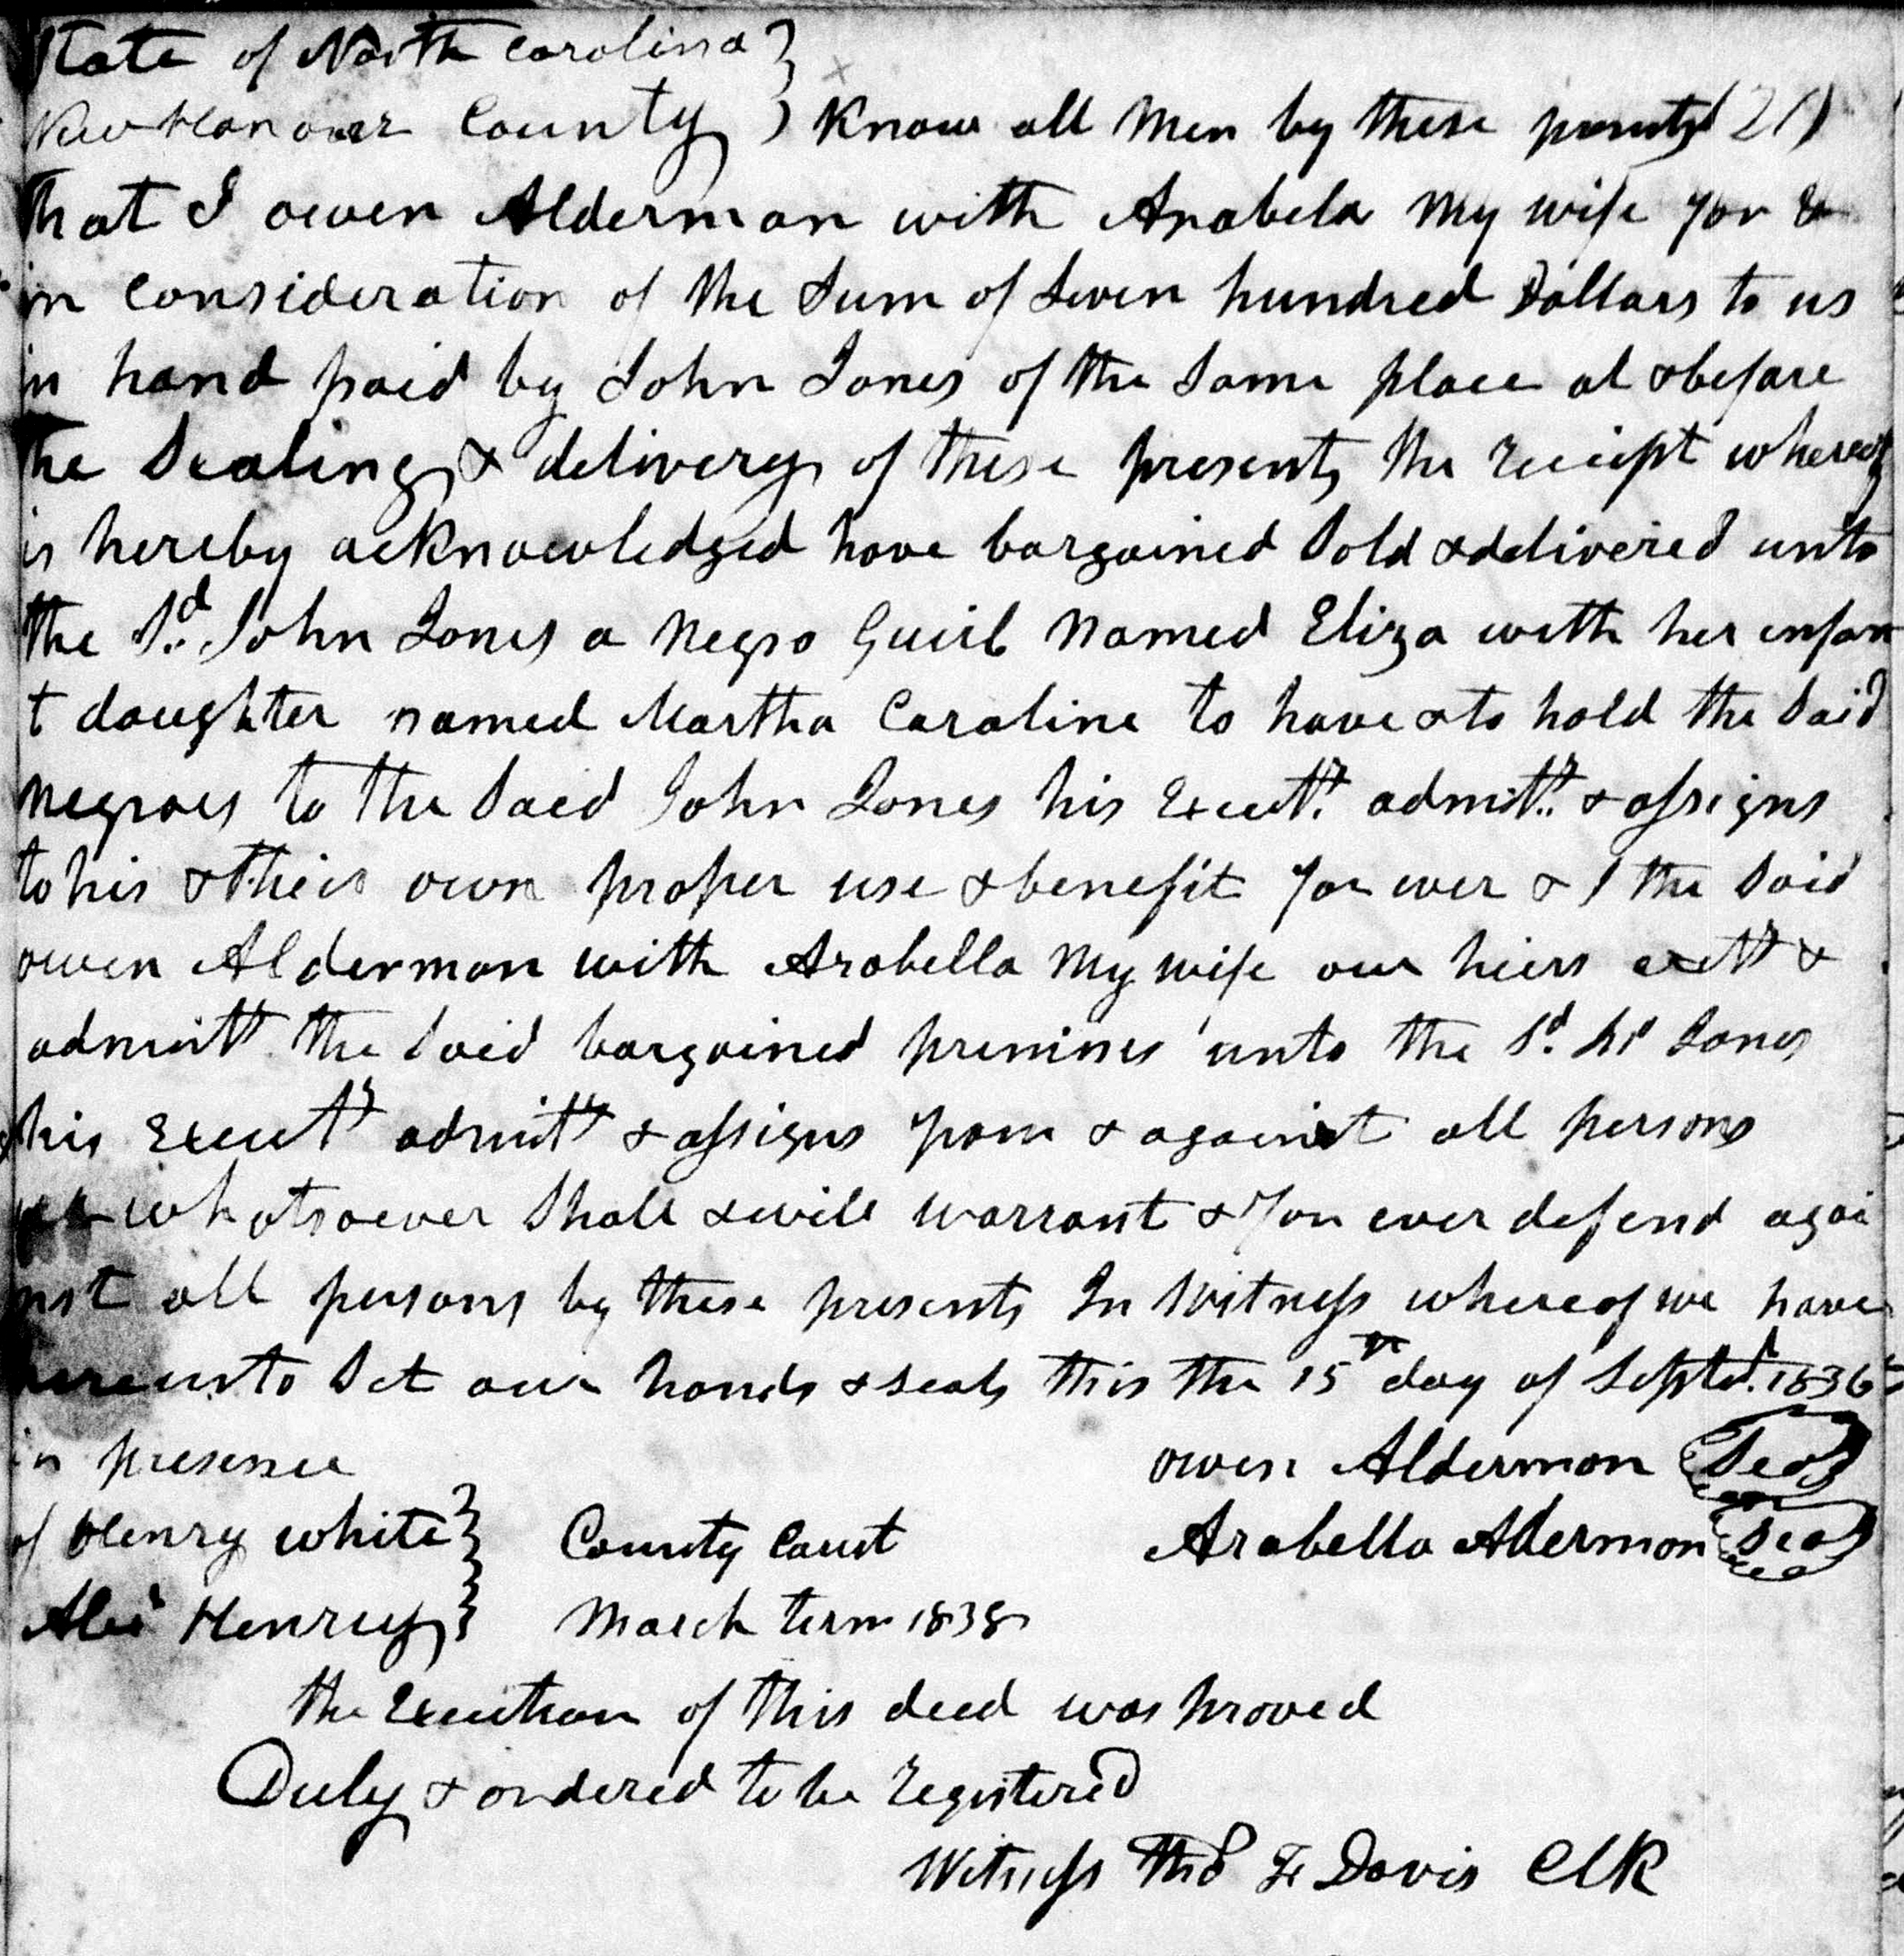 State of North Carolina }
New Hanover County } Know all Men by these presents
that I owen Alderman with Arabela My wife for &
in consideration of the Sum of Seven hundred Dollars to us
in hand paid by John Jones of the Same place at & before
the Sealing & delivery of these presents the receipt whereof
is hereby acknowledged have bargained Sold & delivered unto
the Sd. John Jones a Negro Guirl Named Eliza with her infan
t daughter named Martha Caroline to have & to hold the Said
negroes to the Said John Jones his Execut.rs admit.rs & assigns
to his & their own proper use & benefit for ever & I the Said
owen Alderman with Arabella My wife our hiers exttrs &
admintt the Said bargained premises unto the Sd. Jones
his Execut.rs admittrs & assigns from & against all persons
whatsoever Shall & will warrant & for ever defend agai
nst all persons by these presents In Witness whereof we have
hereunto Set our hands & seals this the 15th day of Septr. 1836
in presence owen Alderman Seal
of Henry white } County Court Arabella Alderman Seal
Alex Henry } March term 1838
the Execution of this deed was proved
Duly & ordered to be registered
Witness Thos F Davis Clk